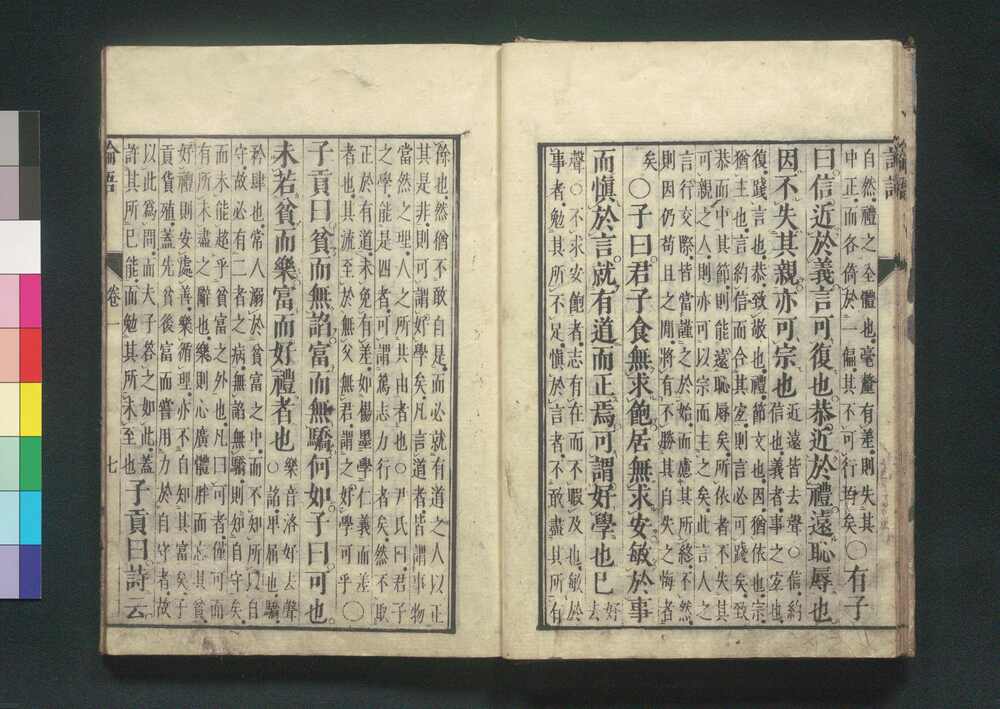 論語
自然禮之全體也毫釐有差則失其
中正而各倚於一偏其不可行均矣○有子
曰信近於義言可復也恭近於禮遠恥辱也
因不失其親亦可宗也近遠皆去聲○信約
信也義者事之宜也
復踐言也恭致敬也禮節文也因猶依也宗
猶主也言約信而合其宜則言必可踐矣致
恭而中其節則能遠恥辱矣所依者不失其
可親之人則亦可以宗而主之矣此言人之
言行交際皆當謹之於始而慮其所終不然
則因仍苟且之閒將有不勝其自失之悔者
矣○子曰君子食無求飽居無求安敏於事
而愼於言就有道而正焉可謂好學也已好
去
聲○不求安飽者志有在而不暇及也敏於
事者勉其所不足愼於言者不敢盡其所有
餘也然猶不敢自是而必就有道之人以正
其是非則可謂好學矣凡言道者皆謂事物
當然之理人之所共由者也○尹氏曰君子
之學能是四者可謂篤志力行者矣然不取
正於有道未免有差如楊墨學仁義而差
者也其流至於無父無君謂之好學可乎○
子貢曰貧而無諂富而無驕何如子曰可也
未若貧而樂富而好禮者也樂音洛好去聲
○諂卑屈也驕
矜肆也常人溺於貧富之中而不知所以自
守故必有二者之病無諂無驕則知自守矣
而未能超乎貧富之外也凡曰可者僅可而
有所未盡之辭也樂則心廣體胖而忘其貧
好禮則安處善樂循理亦不自知其富矣子
貢貨殖蓋先貧後富而嘗用力於自守者故
以此爲問而夫子答之如此蓋
許其所已能而勉其所未至也子貢曰詩云
論語 卷一 七